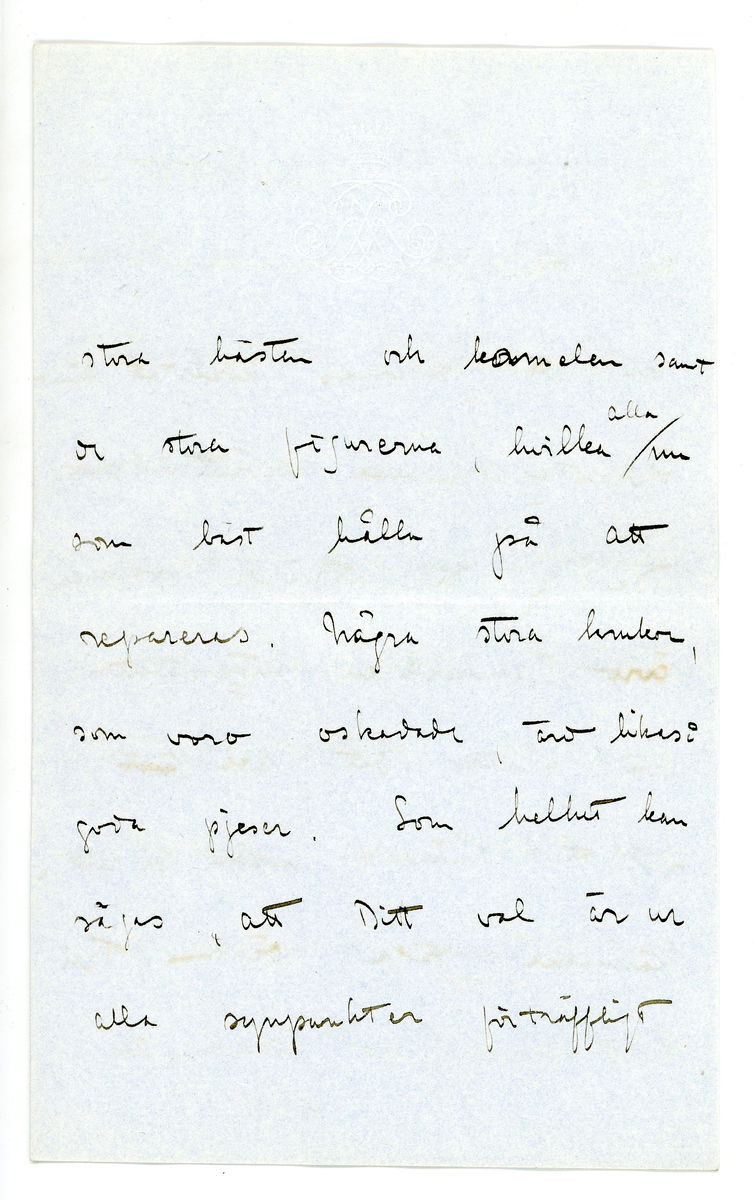 stora hästen och kamelen samt
de stora figurerna, hvilka alla nu
som bäst hålla på att
repareras. Några stora krukor,
som voro oskadade, äro likaså
goda pjeser. Som helhet kan
sägas, att Ditt val är ur
alla synpunkter förträffligt